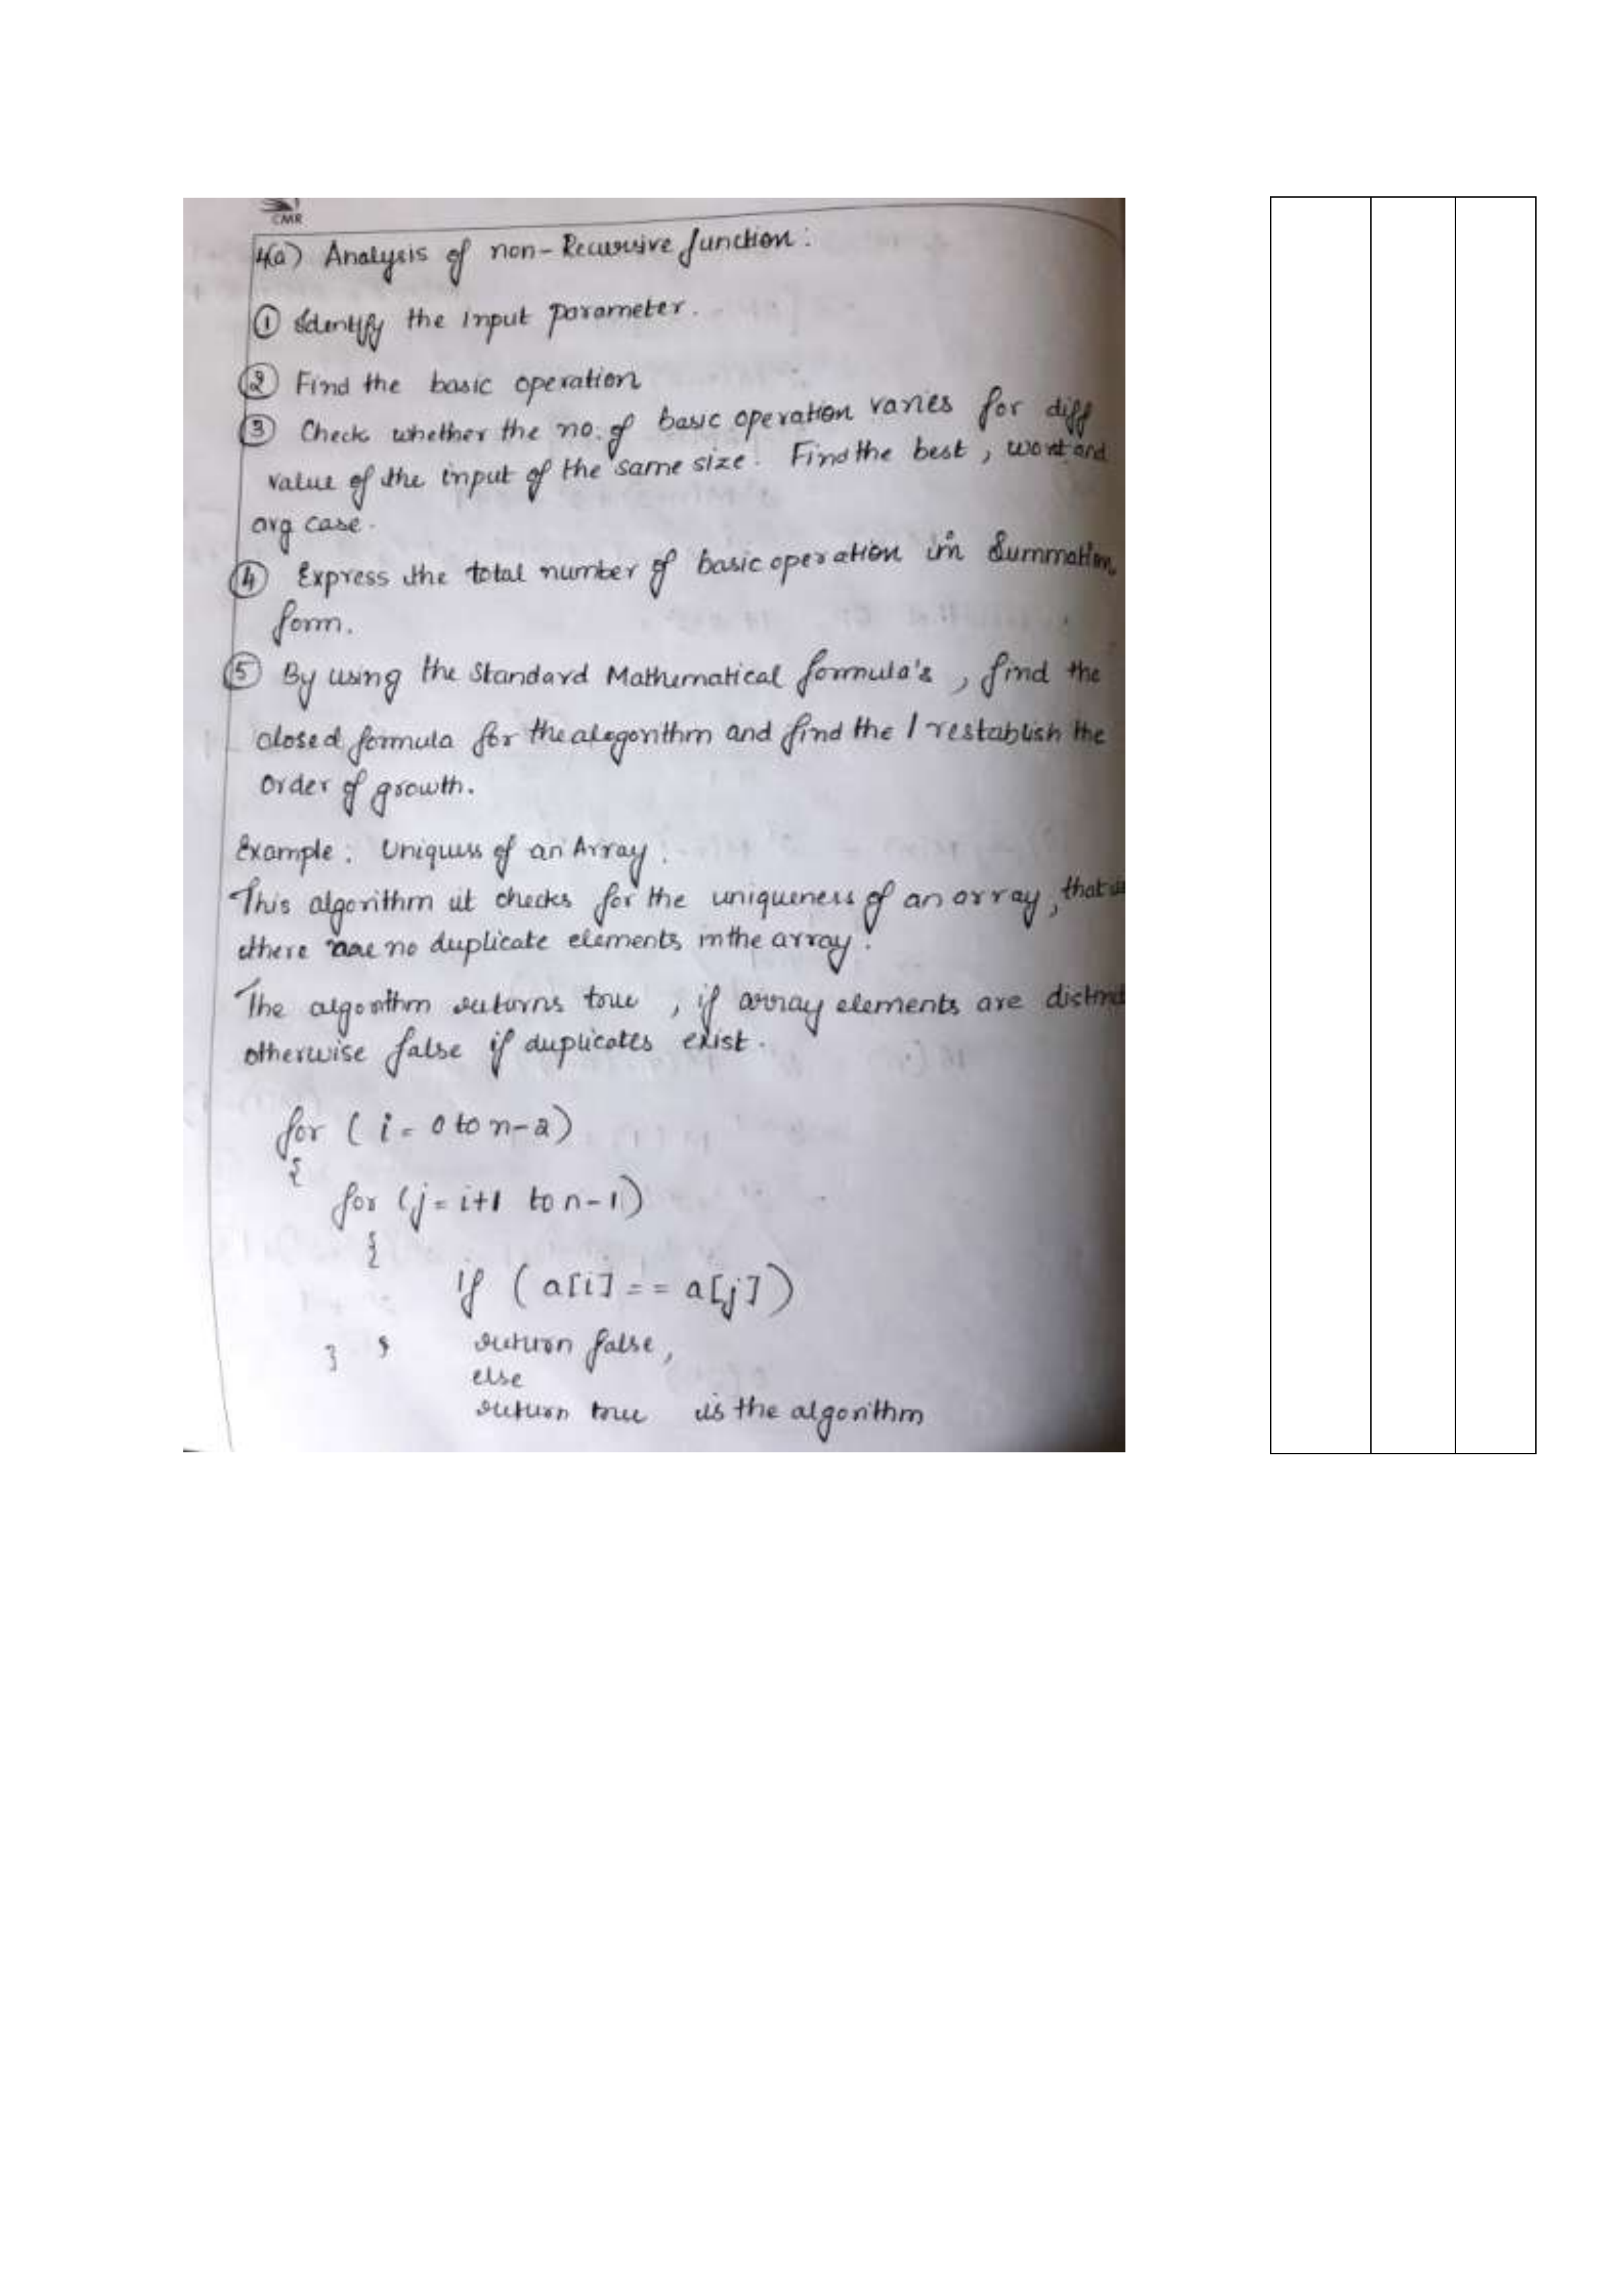 CMR
4(a) Analysis of non-Recursive function:
① Identify the input parameter.
② Find the basic operation
③ Check whether the no. of basic operation varies for diff
value of the input of the same size. Find the best, worst and
avg case.
④ Express the total number of basic operation in Summation
form.
⑤ By using the Standard Mathematical formula's, find the
closed formula for the alogorithm and find the / restablish the
order of growth.
Example: Uniquess of an Array:
This algorithm it checks for the uniqueness of an array, that is
there are no duplicate elements in the array.
The algorithm returns true, if array elements are distinct
otherwise false if duplicates exist.
for ( i = 0 to n-2)
{
for (j = i+1 to n-1)
{
if ( a[i] == a[j])
} } return false,
else
return true is the algorithm